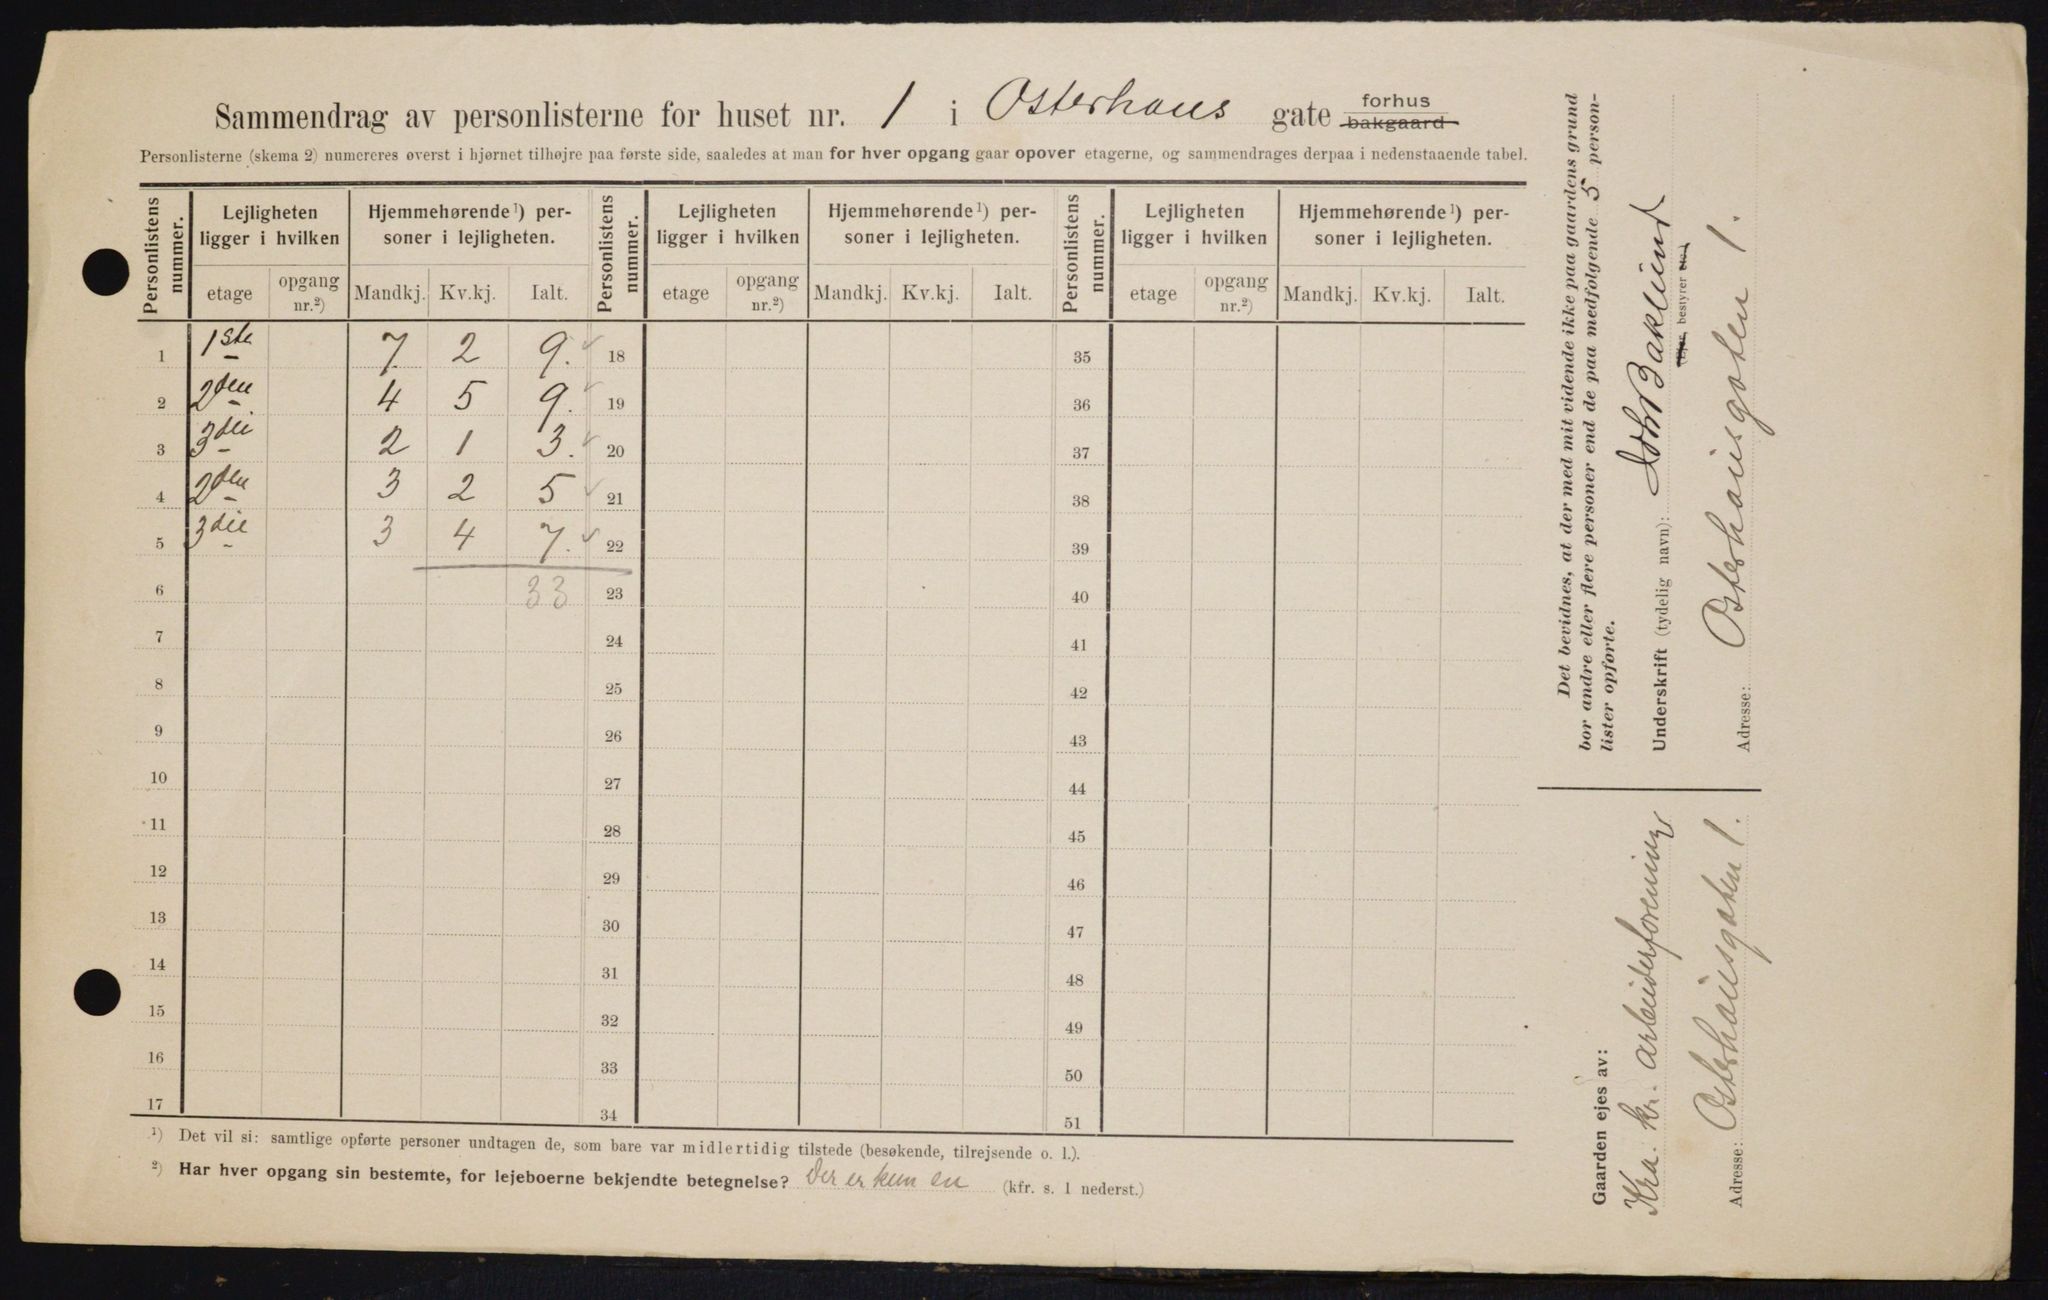 Sammendrag av personlisterne for huset nr. 1 i Osterhaus gate forhus bakgaard
Personlisterne (skema 2) numereres øverst i hjørnet tilhøjre paa første side, saaledes at man for hver opgang gaar opover etagerne, og sammendrages derpaa i nedenstaaende tabel.
Personlistens nummer. Lejligheten ligger i hvilken Hjemmehørende¹) personer i lejligheten. Personlistens nummer. Lejligheten ligger i hvilken Hjemmehørende¹) personer i lejligheten. Personlistens nummer. Lejligheten ligger i hvilken Hjemmehørende¹) personer i lejligheten.
etage opgang nr.²) Mandkj. Kv.kj. Ialt. etage opgang nr.²) Mandkj. Kv.kj. Ialt. etage opgang nr.²) Mandkj. Kv.kj. Ialt.
1 1ste 7 2 9. 18 35
2 2den 4 5 9. 19 36
3 3die 2 1 3. 20 37
4 2den 3 2 5 21 38
5 3die 3 4 7. 22 39
6 33 23 40
7 24 41
8 25 42
9 26 43
10 27 44
11 28 45
12 29 46
13 30 47
14 31 48
15 32 49
16 33 50
17 34 51
¹) Det vil si: samtlige opførte personer undtagen de, som bare var midlertidig tilstede (besøkende, tilrejsende o. l.).
²) Har hver opgang sin bestemte, for lejeboerne bekjendte betegnelse? Der er kun en (kfr. s. 1 nederst.)
Det bevidnes, at der med mit vidende ikke paa gaardens grund
bor andre eller flere personer end de paa medfølgende 5 person-
lister opførte.
Underskrift (tydelig navn): Joh Baklund
(Ejer, bestyrer etc.)
Adresse: Osterhausgaten 1.
Gaarden ejes av:
Kra. kr. arbeiderforening
Adresse: Osterhausgaten 1.